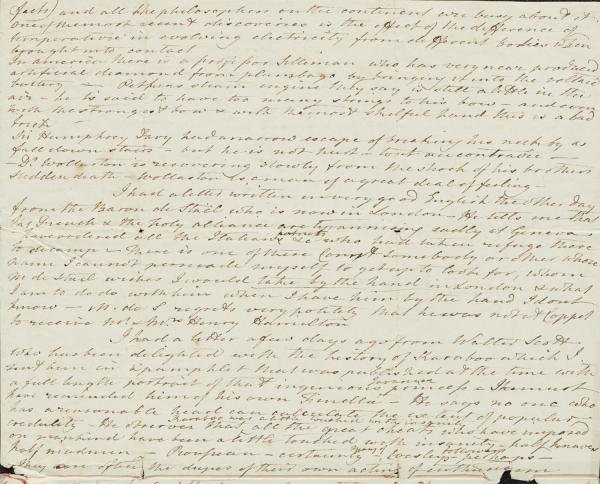 facts) and all the philosophers on the continent are busy about it.
one of the most recent discoveries is the effect of the difference of
temperature in evolving electricity from different bodies when
brought into contact
In america there is a professor Silleman who has very near produced
artificial diamond from plumbago by bringing it into the voltaic
battery — Perkins steam engine they say is still a little in the
air — he is said to have too many strings to his bow — and even
with the strongest bow & with the most skilful hand this is a bad
trick
Sir Humphry Davy had a narrow escape of breaking his neck by a
fall down stairs — but he is not hurt —
— Dr Wollaston is recovering slowly from the shock of his brothers
sudden death — Wollaston is a man of a great deal of feeling —
I had a letter written in very good English the other day
from the Baron de Stäel who is now in London — He tells me that
the French & the holy alliance are tyrannising sadly at Geneva
all the Italians &c who had taken refuge there
to decamp — There is one of these Count Somebody or other whose
name I cannot persuade myself to get up to look for, whom
M de Stäel wishes I would take by the hand in London & what
I am to do with him when I have him by the hand I dont
know — M. de S regrets very politely that he was not at Coppet
to receive Mr & Mrs Henry Hamilton
I had a letter a few days ago from Walter Scott
who has been delighted with the history of Caraboo which I
sent him in a pamphlet that was published at the time with
a full length portrait of that ingenious princess — It must
have reminded him of his own Fenella — He says no one who
has a reasonable head can calculate the extent of popular
credulity — He observes that all the great cheats who have imposed
on mankind have been a little touched with insanity — half knaves
half madmen — certainly — perhaps —
They are often the dupes of their own acting of enthusiasm